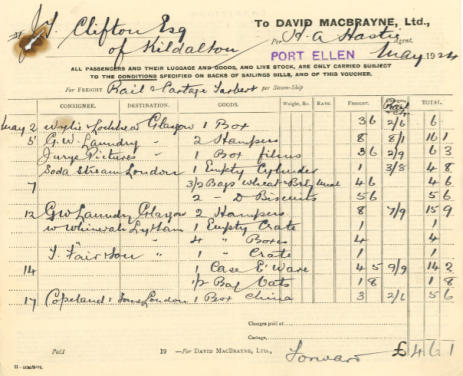 J. Clifton Esq
of Kildalton
To DAVID MACBRAYNE, Ltd.,
Per H. A. Hastie Agent.
PORT ELLEN May 1924
ALL PASSENGERS AND THEIR LUGGAGE AND GOODS, AND LIVE STOCK, ARE ONLY CARRIED SUBJECT
TO THE CONDITIONS SPECIFIED ON BACKS OF SAILINGS BILLS, AND OF THIS VOUCHER.
For FREIGHT Rail & Cartage Tarbert per Steam-Ship
CONSIGNEE. DESTINATION. GOODS. Weight, &c. RATE. FREIGHT. TOTAL.
May 2 Wylie & Lochhead Glasgow 1 Box 3 6 2/6 6
5 G.W. Laundry " 2 Hampers 8 8/1 16 1
Jury's Pictures " 1 Box films 3 6 2/9 6 3
Soda Stream London 1 Empty Cylinder 1 3/8 4 8
7 3/2 Bags Wheat & Brly meal 4 6 4 6
2 - D Biscuits 5 6 5 6
12 GW Laundry Glasgow 2 Hampers 8 7/9 15 9
W Lytham 1 Empty Crate 1 1
" " 4 " Boxes 4 4
T. Fair & Son " 1 " Crate 1 1
14 1 Case E Ware 4 5 9/9 14 2
1/2 Bag Oats 1 8 1 8
17 Copeland & Sons London 1 Box China 3 2/6 5 6
Charges paid at
Cartage,
Paid 19 —For DAVID MACBRAYNE, LTD., Forward £ 4 6 1